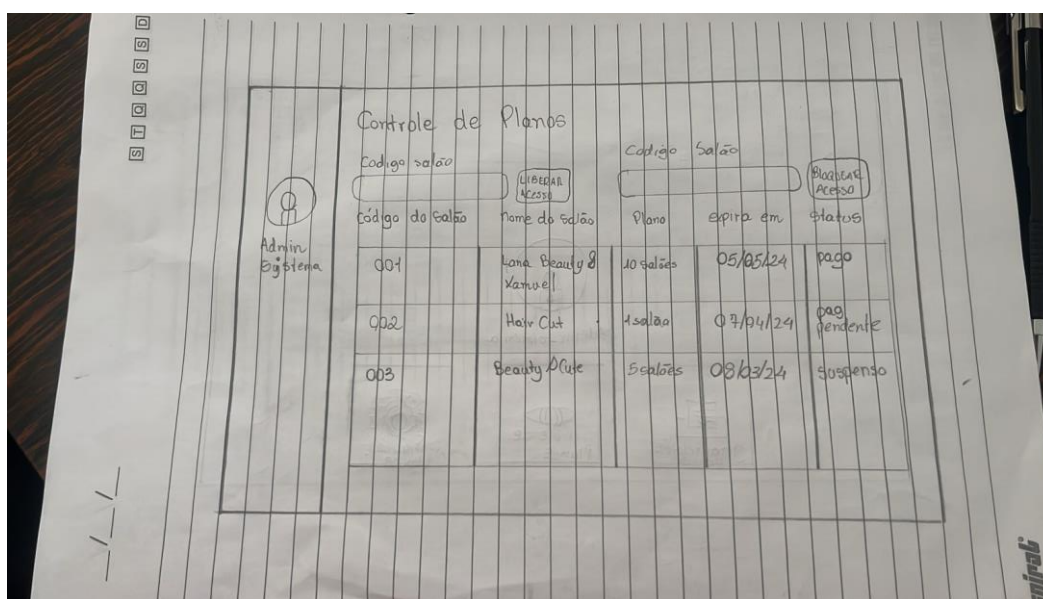 D
S
S
Q
Q
T
S
Controle de Planos
Codigo salão
LIBERAR
Acesso
Codigo Salão
Bloquear
Acesso
Admin
Sistema
Código do Salão nome do salão Plano expira em status
001 Lana Beauty & 10 salões 05/05/24 pago
002 Hair Cut 1 salão 07/04/24 pag
pendente
003 Beauty 5 salões 08/03/24 suspenso
__/__/__